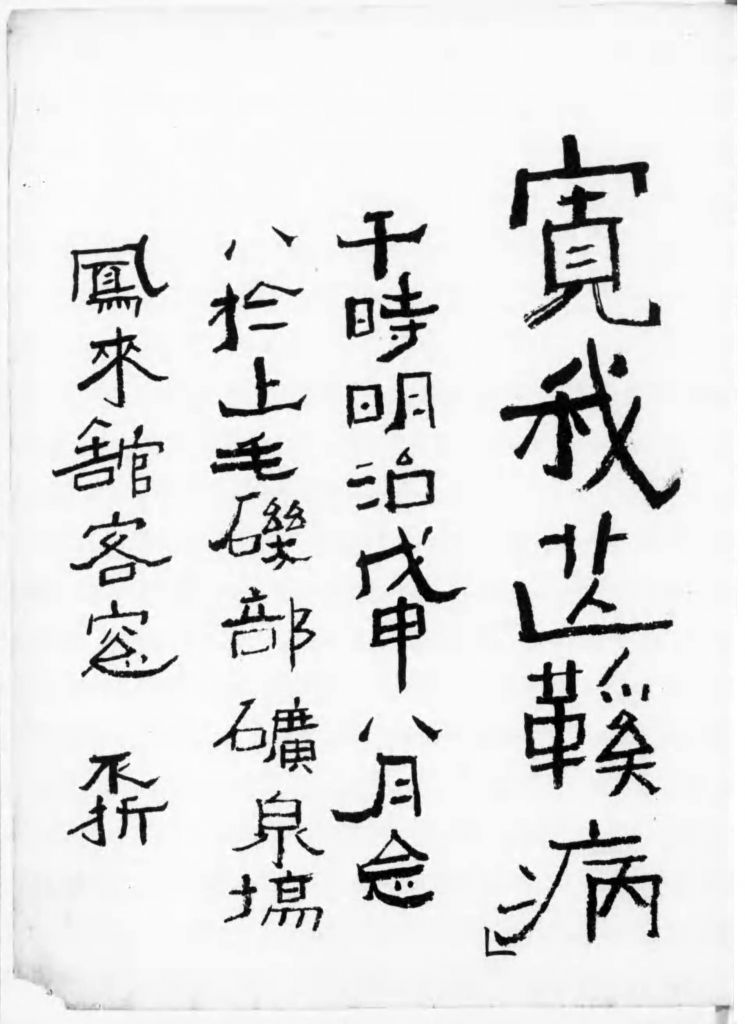 寬我芒鞵病」
于時明治戊申八月念
八於上毛磯部礦泉塲
鳳來舘客窓 不折